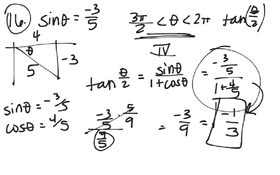 16. sinθ = -3/5   3π/2 < θ < 2π   tan(θ/2)
4
IV
θ
5
-3
tan θ/2 = sinθ/(1+cosθ) = (-3/5)/(1+4/5)
sinθ = -3/5
cosθ = 4/5
(-3/5)/(9/5) · 5/9 = -3/9 = -1/3